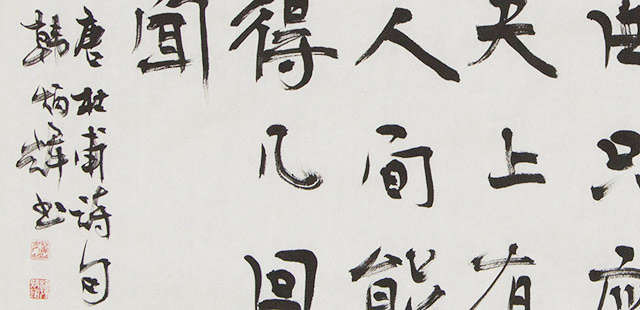 曲只應
天上有
人间能
得几回
闻
唐杜甫詩句
韓炳輝书